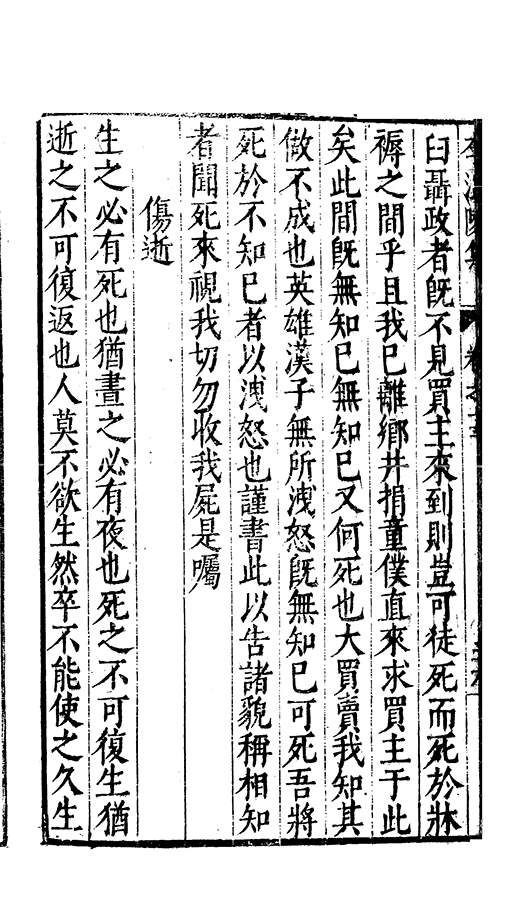 臼聶政者既不見買主來到則豈可徒死而死於牀
褥之間乎且我已離鄉井捐童僕直來求買主于此
矣此間既無知已無知已又何死也大買賣我知其
做不成也英雄漢子無所洩怒既無知已可死吾將
死於不知已者以洩怒也謹書此以告諸貌稱相知
者聞死來視我切勿收我屍是囑
傷逝
生之必有死也猶晝之必有夜也死之不可復生猶
逝之不可復返也人莫不欲生然卒不能使之久生